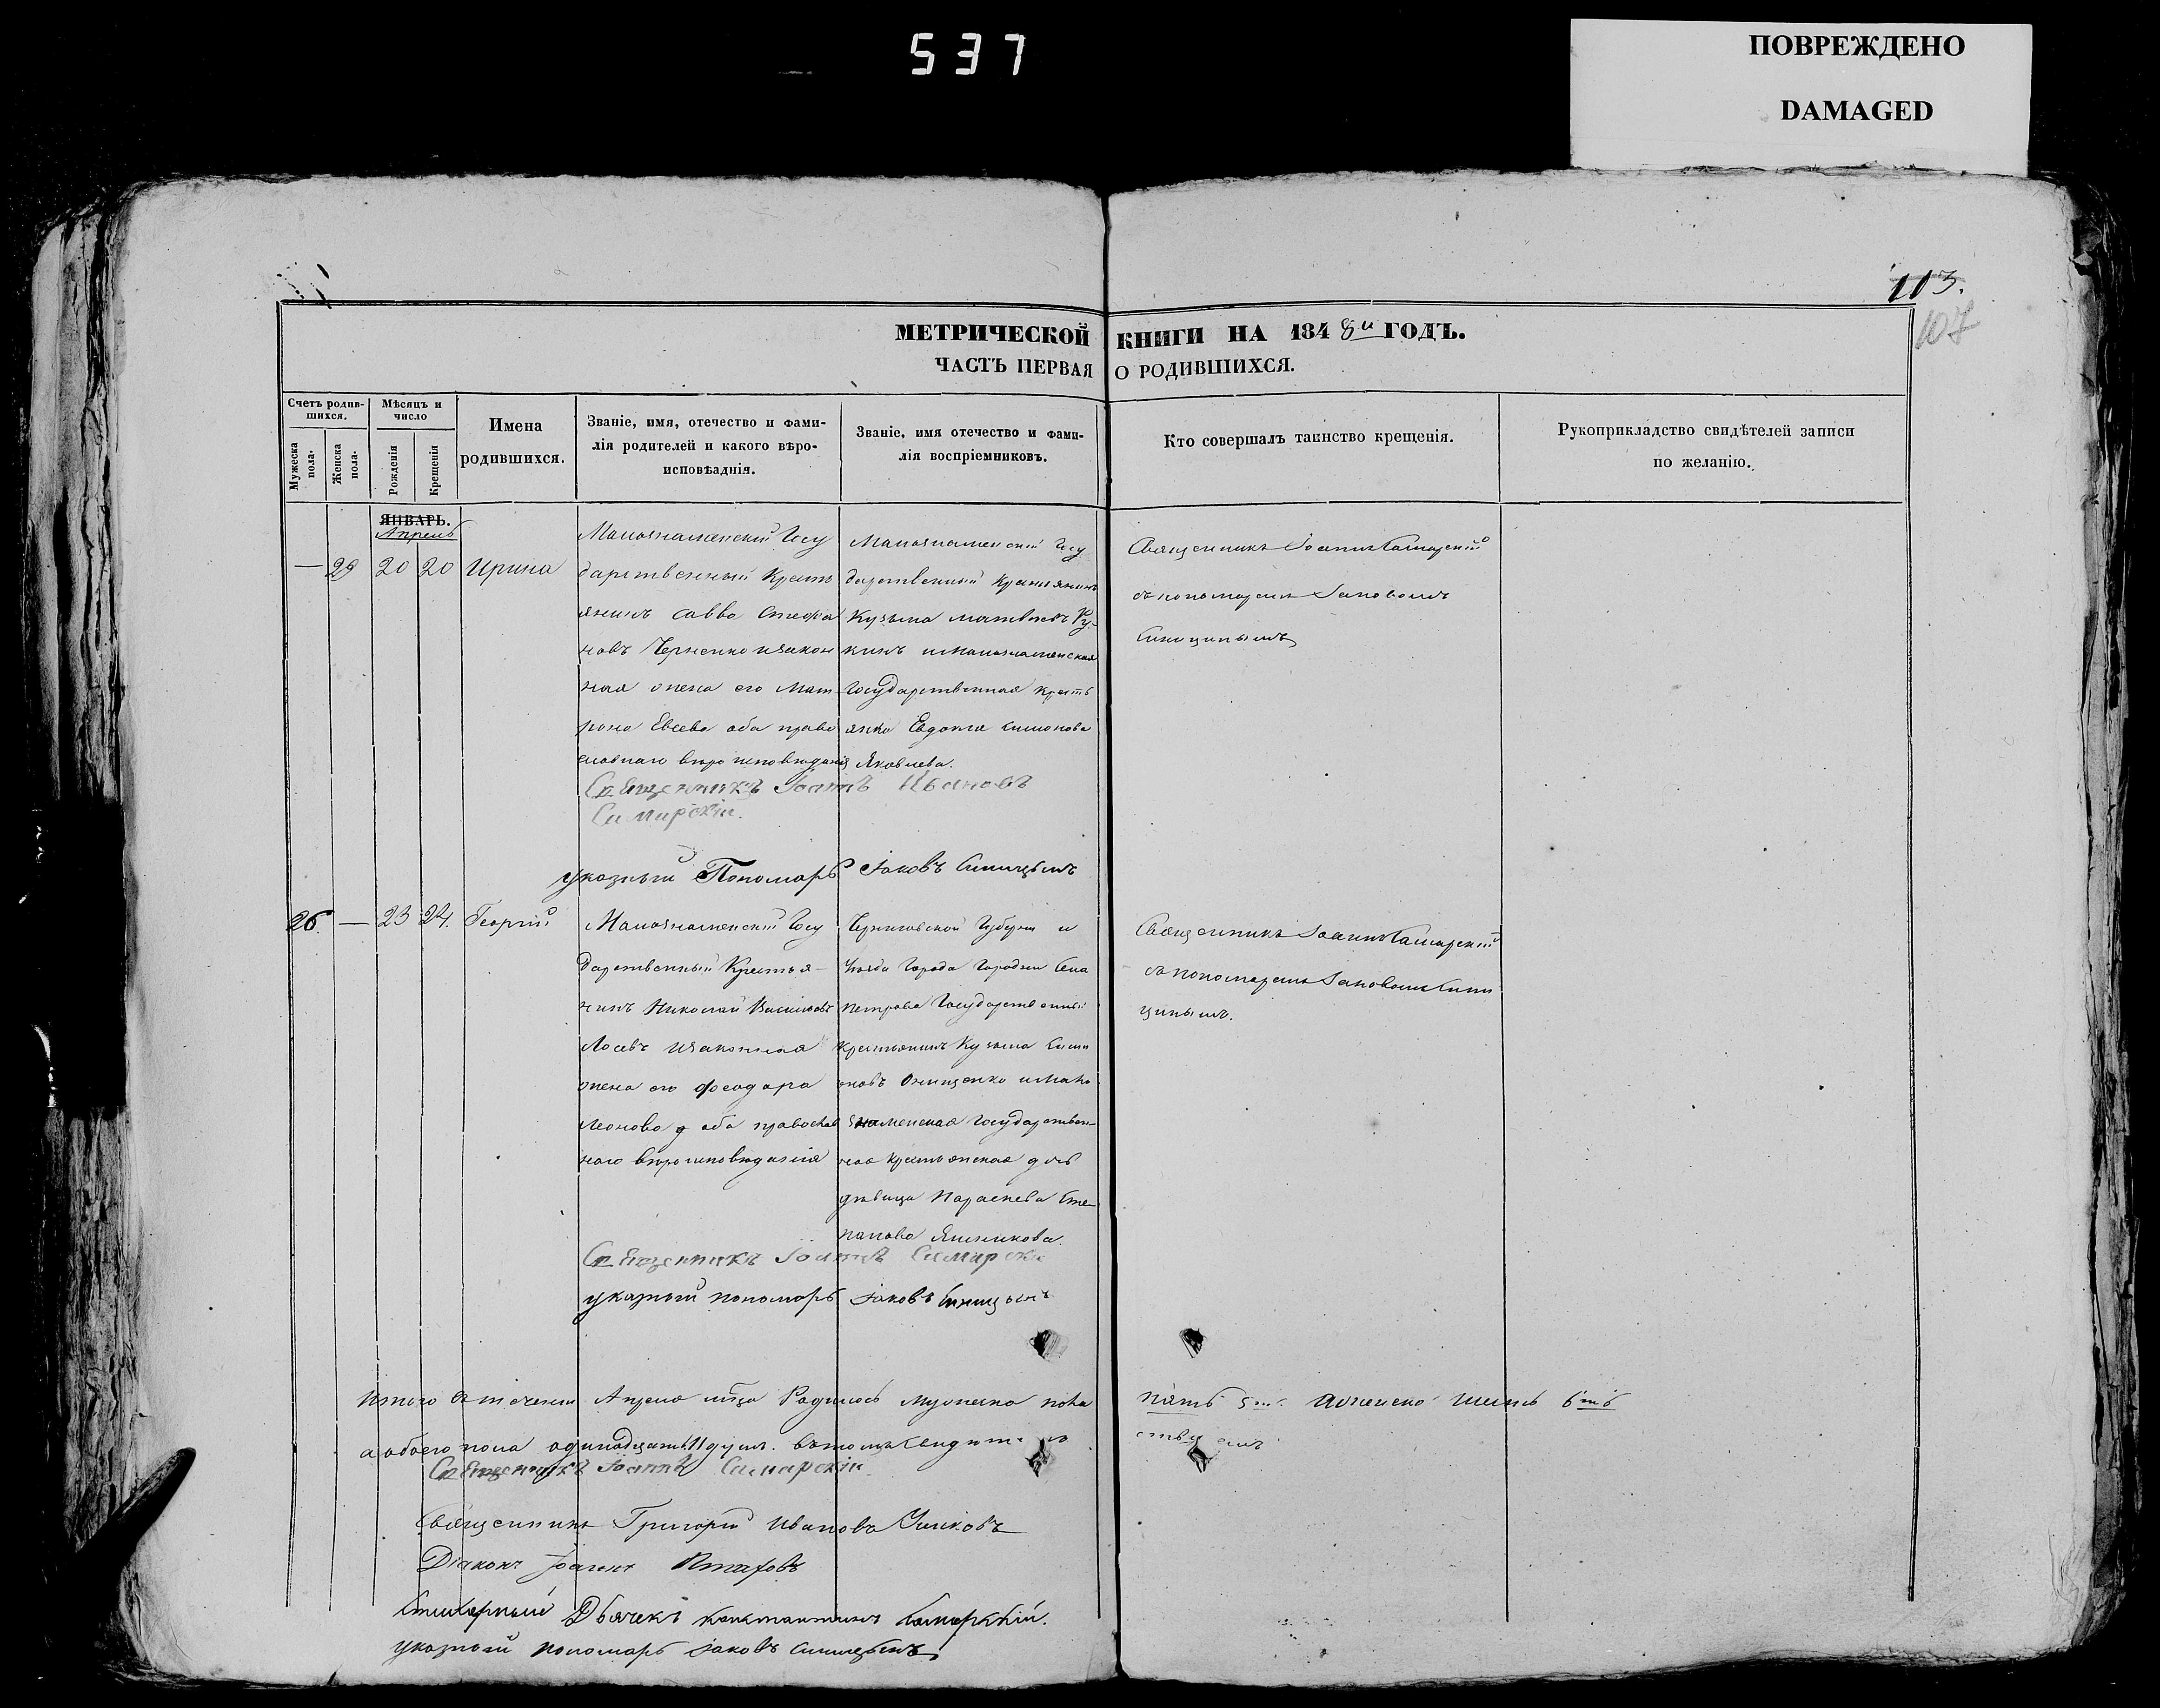 537
ПОВРЕЖДЕНО
DAMAGED
113.
107
МЕТРИЧЕСКОЙ КНИГИ НА 1848й ГОДЪ.
ЧАСТЬ ПЕРВАЯ О РОДИВШИХСЯ.
Счетъ родив-
шихся.
Мужеска
пола.
Женска
пола.
Мѣсяцъ и
число
Рожденія
Крещенія
Имена
родившихся.
Званіе, имя, отечество и фами-
лія родителей и какого вѣро-
исповѣаднія.
Званіе, имя отечество и фами-
лія воспріемниковъ.
Кто совершалъ таинство крещенія.
Рукоприкладство свидѣтелей записи
по желанію.
ЯНВАРЬ.
Апрель
— 29 20 20 Ирина
Малознаменский Госу
дарственный Кресть
янинъ Савва Стефа
новъ Черненко и закон
ная жена его Мат
рона Евсева оба право
славнаго вѣроисповѣданія
Малознаменский Госу
дарственный Крестьянинъ
Кузьма Матвѣевъ
кинъ и Малознаменская
Государственная Кресть
янка Евдокія Симонова
Яковлева.
Священникъ Іоаннъ Самарскій
съ пономаремъ Іаковомъ
Синицынымъ
Священникъ Іоаннъ Ивановъ
Самарскій.
указный Пономарь Іаковъ Синицынъ
26. — 23 24. Георгій
Малознаменский Госу
дарственный Крестья-
нинъ Николай Васильевъ
Лосевъ и законная
жена его Феодора
Леонова оба православ
наго вѣроисповѣданія
Черниговской Губерніи и
Уѣзда Города Городни Села
Петрова Государственный
Крестьянинъ Кузьма Сим
оновъ Онищенко и Мало
знаменская Государствен-
ная Крестьянская дочь
дѣвица Параскева Сте-
панова
Священникъ Іоаннъ Самарскій
съ пономаремъ Іаковомъ Сини
цынымъ.
Священникъ Іоаннъ Самарскі
указный пономарь Іаковъ Синицынъ
Итого въ теченіи Апреля мѣца Родилось мужеска пола пять 5ть. а женска шесть 6ть
а обоего пола одинадцать 11 душъ. въ томъ
Священникъ Іоаннъ Самарскій.
Священникъ Григорій Ивановъ
Діаконъ Іоаннъ
Стихарный Дьячекъ Константинъ Самарскій.
указный пономарь Іаковъ Синицынъ